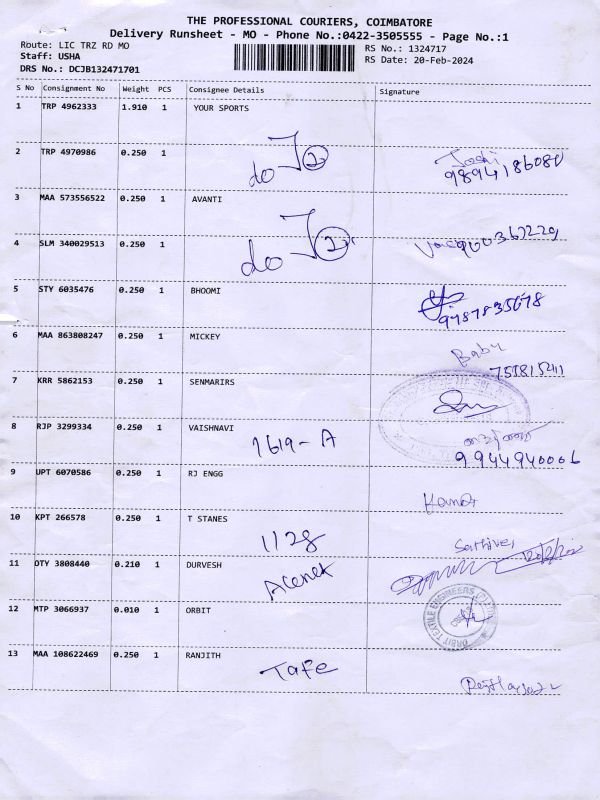 THE PROFESSIONAL COURIERS, COIMBATORE
Delivery Runsheet - MO - Phone No.:0422-3505555 - Page No.:1
Route: LIC TRZ RD MO RS No.: 1324717
Staff: USHA RS Date: 20-Feb-2024
DRS No.: DCJB132471701
S No Consignment No Weight PCS Consignee Details Signature
1 TRP 4962333 1.910 1 YOUR SPORTS
2 TRP 4970986 0.250 1 do To 2 Joshi
9894186080
3 MAA 573556522 0.250 1 AVANTI
4 SLM 340029513 0.250 1 do To 2
5 STY 6035476 0.250 1 BHOOMI
9787835678
6 MAA 863808247 0.250 1 MICKEY Baby
7 KRR 5862153 0.250 1 SENMARIRS
8 RJP 3299334 0.250 1 VAISHNAVI
1619-A 9944940006
9 UPT 6070586 0.250 1 RJ ENGG
Kumar
10 KPT 266578 0.250 1 T STANES
1128
11 OTY 3808440 0.210 1 DURVESH
12 MTP 3066937 0.010 1 ORBIT
ORBIT TEXTILE ENGINEERS
13 MAA 108622469 0.250 1 RANJITH
Tafe